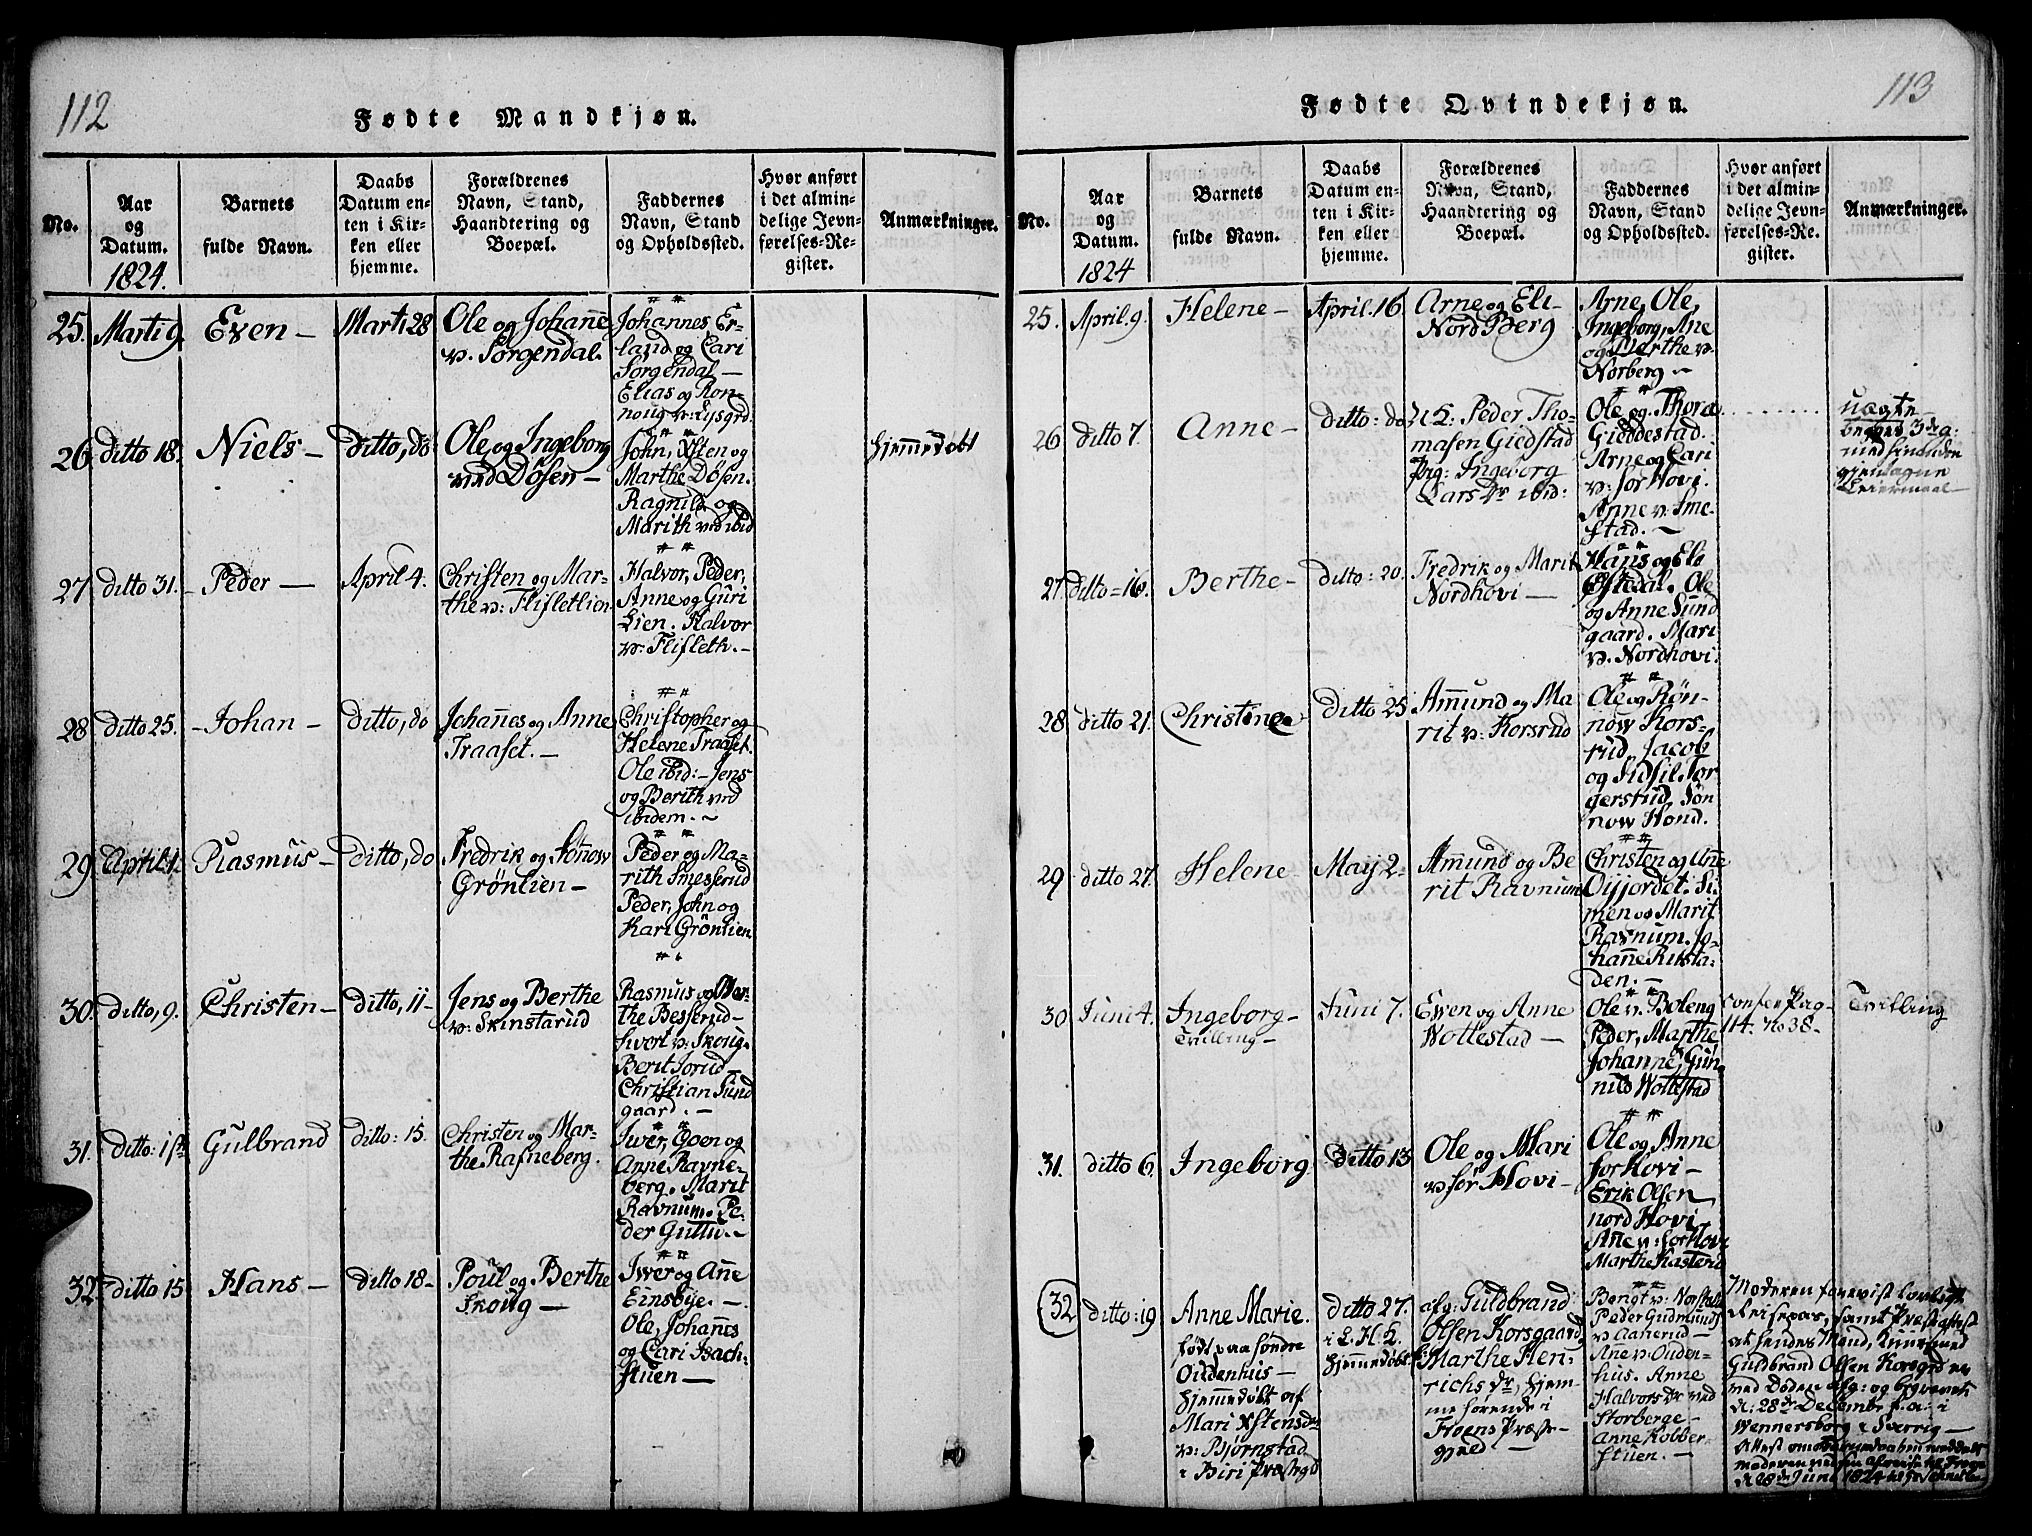 112
Fødte Mandkjøn.
No.
Aar
og
Datum.
1824.
Barnets
fulde Navn.
Daabs
Datum en-
ten i Kir-
ken eller
hjemme.
Forældrenes
Navn, Stand,
Haandtering og
Boepæl.
Faddernes
Navn, Stand
og Opholdssted.
Hvor anført
i det almin-
delige Jevn-
førelses-Re-
gister.
Anmærkninger.
25.
Marti 9.
Even –
Marti 28
Ole og Johanne
v. Sørgendal.
Johannes Er-
land og Cari
Sørgendal –
Elias og Ron-
noug v: Lysgrd
26
ditto 18.
Niels –
ditto, do
Ole og Ingeborg
ved Døsen –
John, Østen og
Marthe Døsen.
Ragnild og
Marith ved ibid
Hjemmedøbt
27
ditto 31.
Peder –
April 4.
Christen og Mar-
the v: Flisletlien
Halvor, Peder,
Anne og Guri
Lien. Halvor
v: Flisleth. –
28
ditto 25.
– Johan –
ditto, do
Johannes og Anne
Traaset. –
Christopher og
Helene Traaset.
Ole ibid: – Jens
og Berith ved
ibidem. ~
29
April 1.
Rasmus –
ditto, do
Fredrik og Sønow
Grønlien –
Peder og Ma-
rith Smesserud
Peder, John og
Kari Grønlien
30.
ditto, 9.
Christen –
ditto, 11 –
Jens og Berthe
v: Skinstarud
Rasmus og Ber-
the Besserud –
Sivort v: Skoug.
Berit Jorud
Christian Sund
gaard. –
31.
ditto: 1ste
Gulbrand
ditto: 15.
Christen og Mar-
the Rafneberg.
Iwer, Goen og
Anne Ravne-
berg. Marit
Ravnum. Pe-
der Guttu. –
32
ditto 15
Hans –
ditto 18 –
Poul og Berthe
Skoug –
Iwer og Anne
Einsbye. –
Ole, Johannes
og Cari Bach-
stuen –
113
Fødte Qvindekjøn.
No.
Aar
og
Datum.
1824
Barnets
fulde Navn.
Daabs
Datum en-
ten i Kir-
ken eller
hjemme.
Forældrenes
Navn, Stand,
Haandtering og
Boepæl.
Faddernes
Navn, Stand
og Opholdssted.
Hvor anført
i det almin-
delige Jevn-
førelses-Re-
gister.
Anmærkninger.
25.
April. 9.
Helene –
April. 16.
Arne og Eli
Nord Berg
Arne, Ole,
Ingeborg, Ane
og Berthe v:
Norberg. –
26
ditto 7.
Anne –
ditto: do
Peder Tho-
masen Giedstad
Pig: Ingeborg
Lars Dr ibid:
Ole og Thora
Gieddestad.
Arne og Cari
v: Sør Hovi.
Anne v: Sme-
stad. ~
uægte
27.
ditto = 16.
Berthe –
ditto: 20.
Fredrik og Marit
Nordhovi –
Hans og Eli
Ole
og Anne Sund
gaard. Mari
v. Nordhovi.
28
ditto 21.
Christine
ditto 25
Amund og Ma
rit v: Korsrud
Ole og Røn-
now Kors-
rud, Jacob
og Sidsil Tor
gerstud, Søn
now Hond.
29
ditto 27.
Helene
May 2 –
Amund og Be
rit Ravnum
Christen og Anne
Øijjordet. Si-
men og Marit
Ravnum. Jo-
hanne Rusta-
den. –
30
Juni 4.
Ingeborg –
Tvilling –
Juni 7.
Even og Anne
Wollestad –
Ole v: Boleng
Peder, Marthe
Johanne, Gun
nild Wollestad
confer Pag
114. No 38 –
Tvilling
31.
ditto 6.
Ingeborg
ditto 13
Ole og Mari
v: Sør Hovi –
Ole og Anne
Sør Hovi –
Erik Olsen
nord Hovi
Ane v: Sør Hovi
Marthe Kasterud
32
ditto: 19
Anne Marie.
født paa søndre
Oudenhus –
Hjemmedøbt af
Mari Østensdr
v: Bjørnstad
i Biri Præstegd
ditto 27.
i L. H. K.
Hjemmedøbt
afg: Guldbrand
Olsen Korsgaard
Marthe Hen-
richs Dr, hjem-
me hørende i
Præste-
gjeld –
Bengt v: Norstad
Peder Gudmunds
v: Aanerud –
Ane v: Ouden-
hus. Anne
Halvors Dr ved
Storberge –
Anne Kobber-
stuen. –
Moderen foreviist lovligt
Reisepas, samt Præsteattest
at hendes Mand,
Guldbrand Olsen Korsgrd er
ved Døden afg: og begravet
d: 28de December f. a. i
Wennersborg i Sverrig –
d 28de Juni 1824